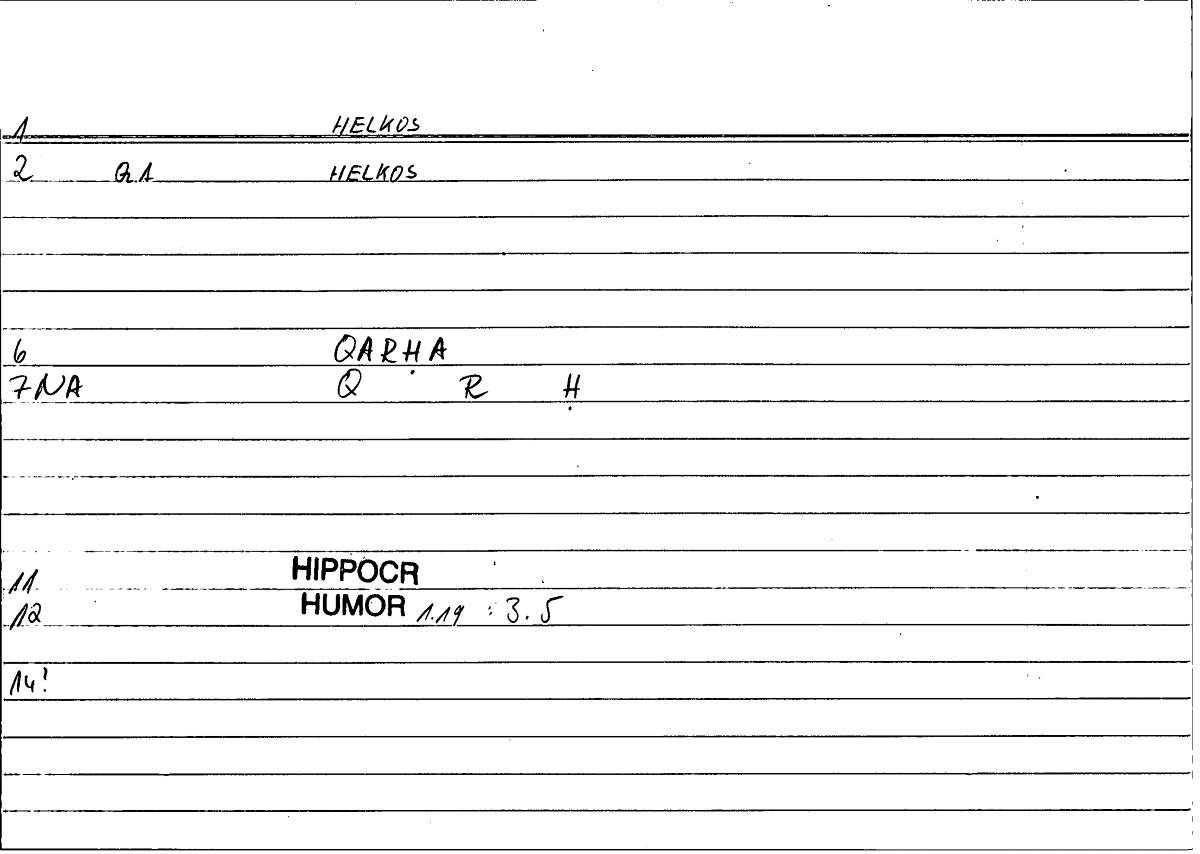 1 HELKOS
2 G1 HELKOS
6 QARḤA
7NA Q R Ḥ
11 HIPPOCR
12 HUMOR 1.19 : 3.5
14!